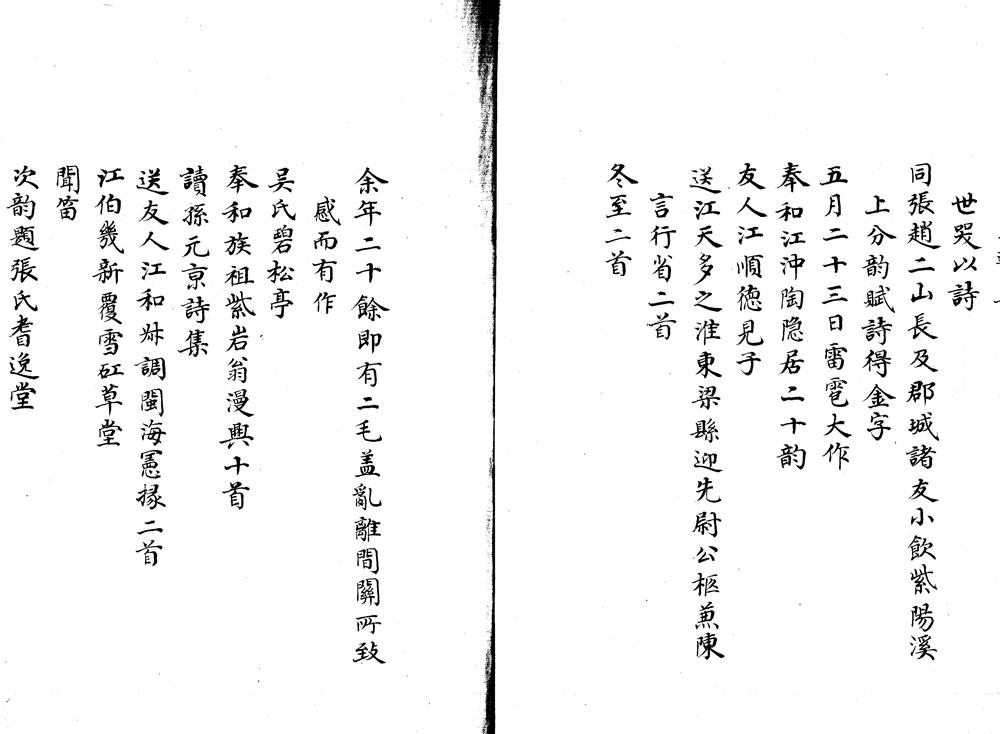 世哭以詩
同張趙二山長及郡城諸友小飲紫陽溪
上分韵賦詩得金字
五月二十三日雷雹大作
奉和江沖陶隐居二十韵
友人江順德見子
送江天多之淮東梁縣迎先尉公柩蒹陳
言行省二首
冬至二首
余年二十餘即有二毛盖亂離間關所致
感而有作
吴氏碧松亭
奉和族祖紫岩翁漫興十首
讀孫元京詩集
送友人江和叔調閩海憲掾二首
江伯幾新覆雪矼草堂
聞笛
次韵題張氏耆逸堂